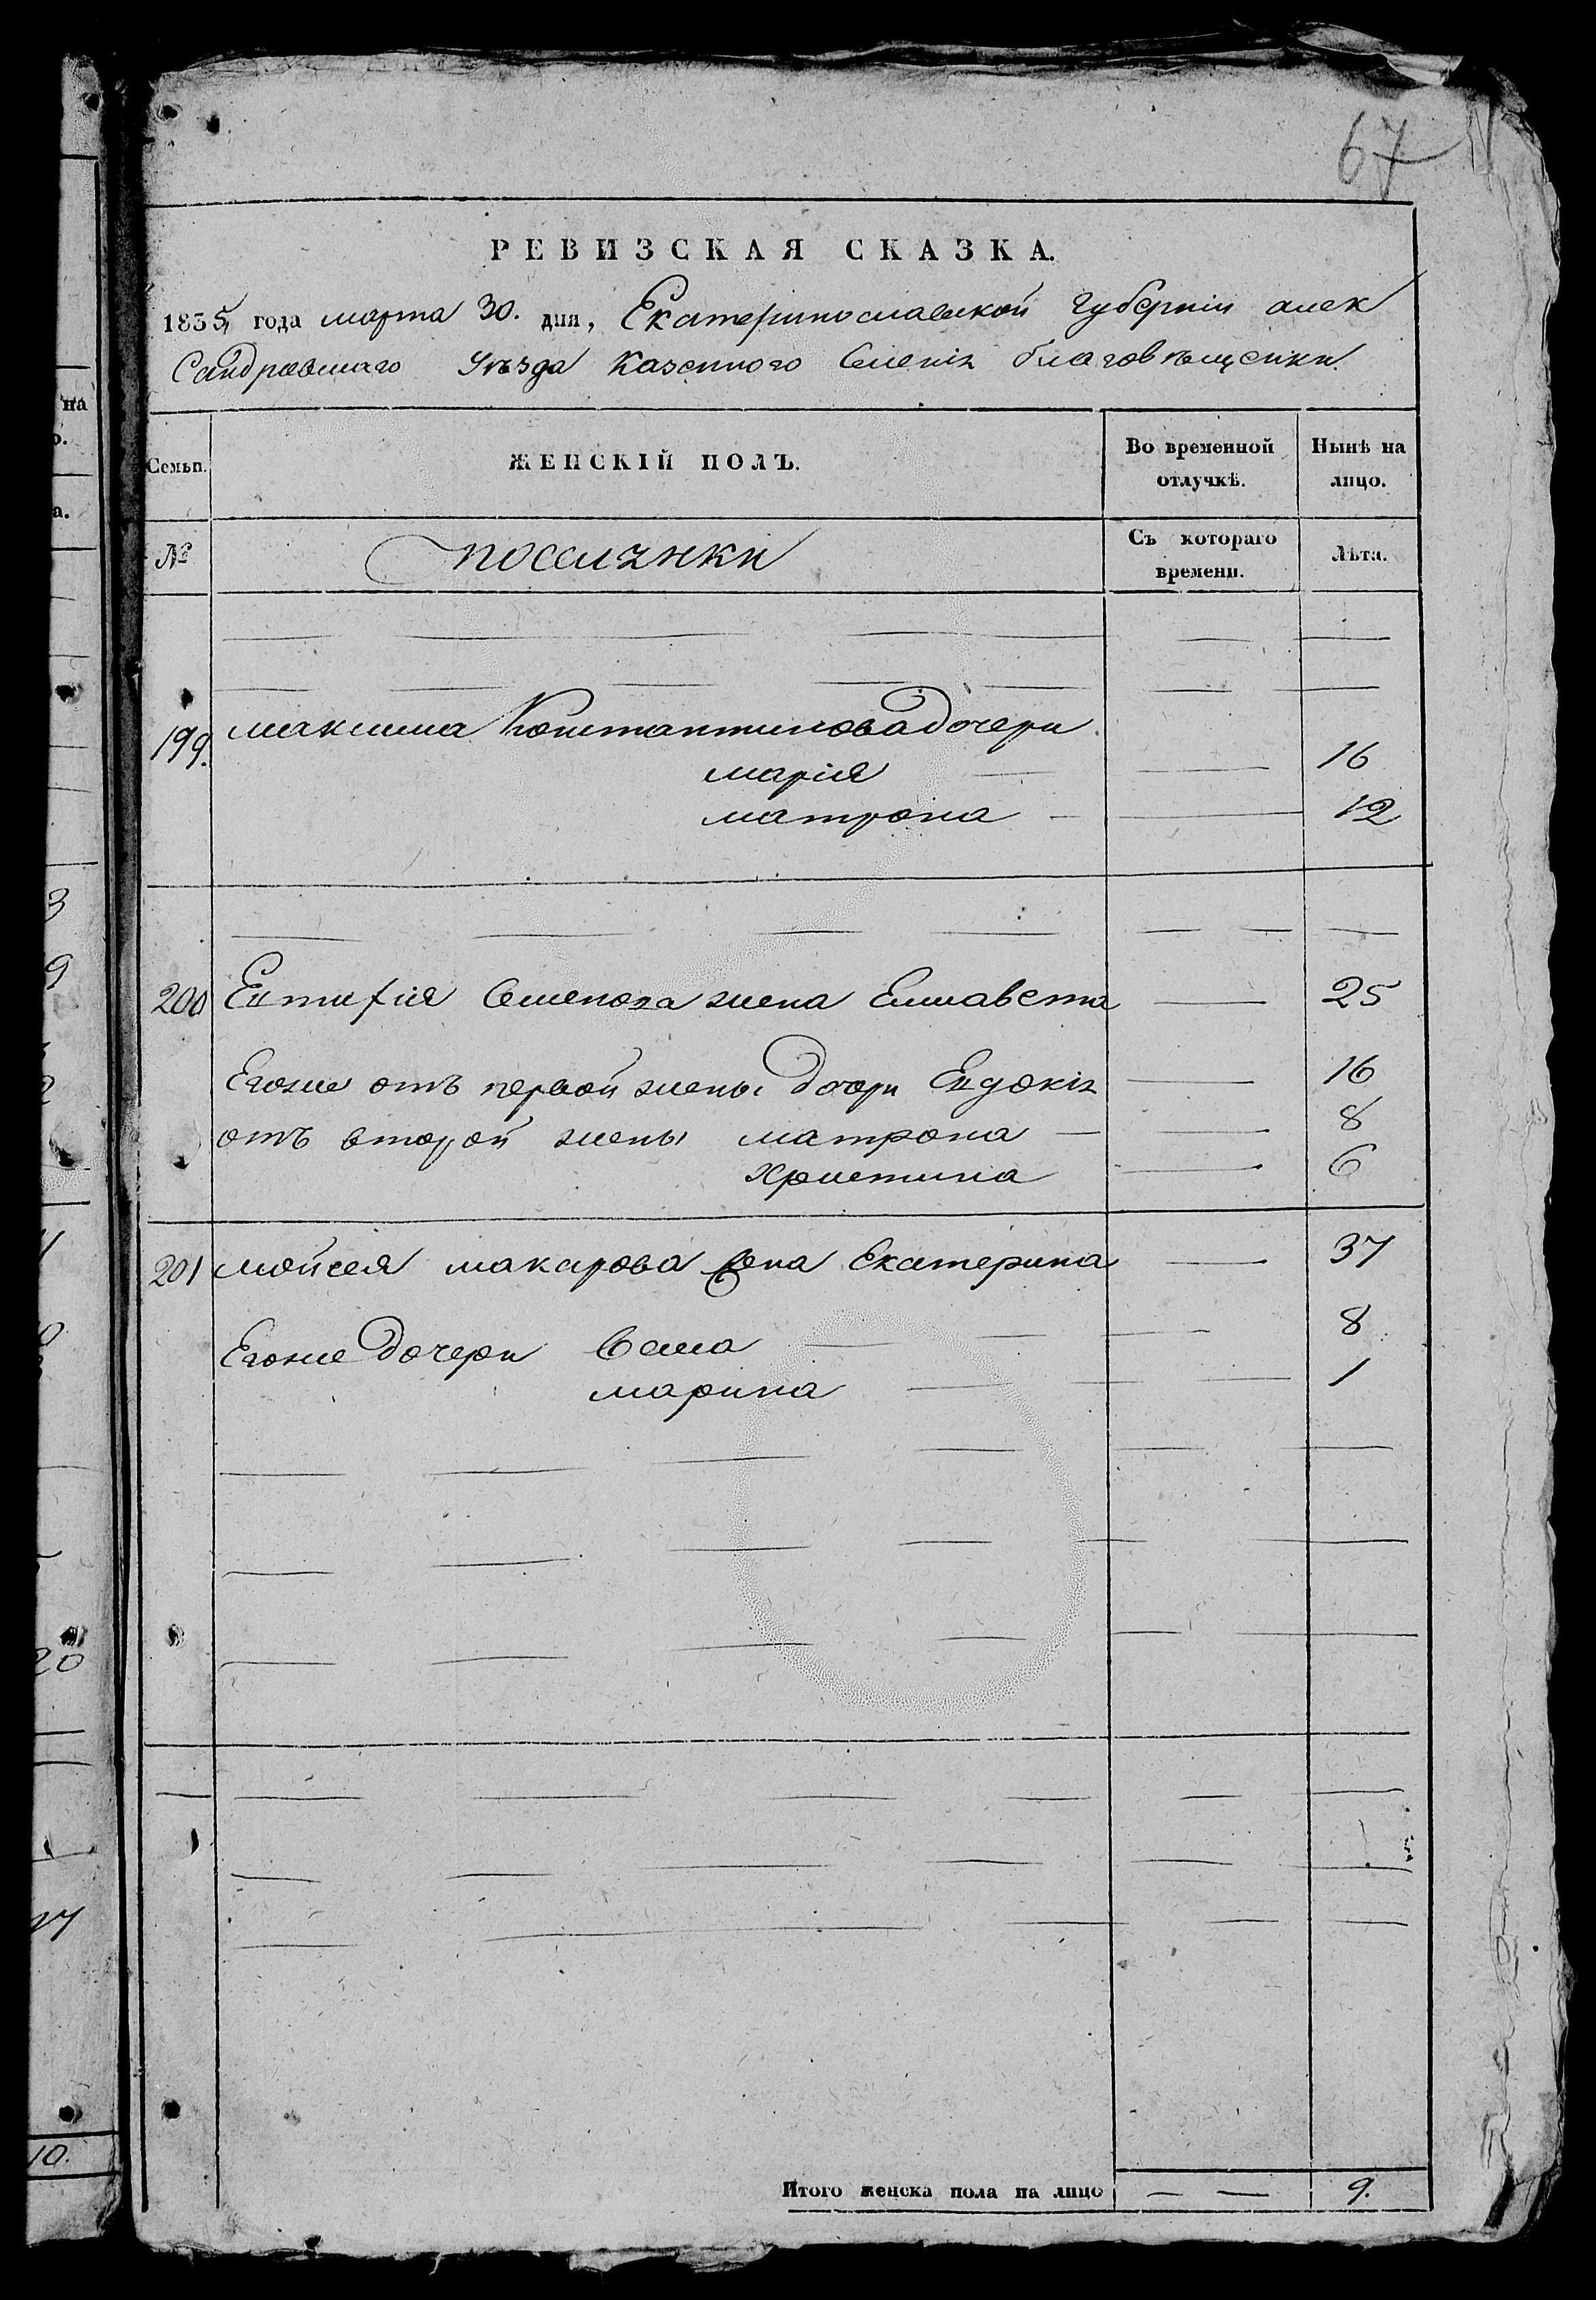 67
РЕВИЗСКАЯ СКАЗКА.
1835 года марта 30. дня, Екатеринославской губерніи алек
Сандровшаго Уѣзда Казенного Селенія благовѣщенки.
на
Семьи. ЖЕНСКІЙ ПОЛЪ. Во временной отлучкѣ. Нынѣ на лицо.
№ поселянки Съ котораго времени. Лѣта.
199. максима Константинова дочери
марія 16
матрона 12
3
9
200 Евтифія Семенова жена Елисавета 25
Егоже отъ первой жены дочь Евдокія 16
отъ второй жены матрона 8
христина 6
201 мойсея макарова жена Екатерина 37
Егоже дочери 8
марина 1
20
10.
Итого женска пола на лицо 9.